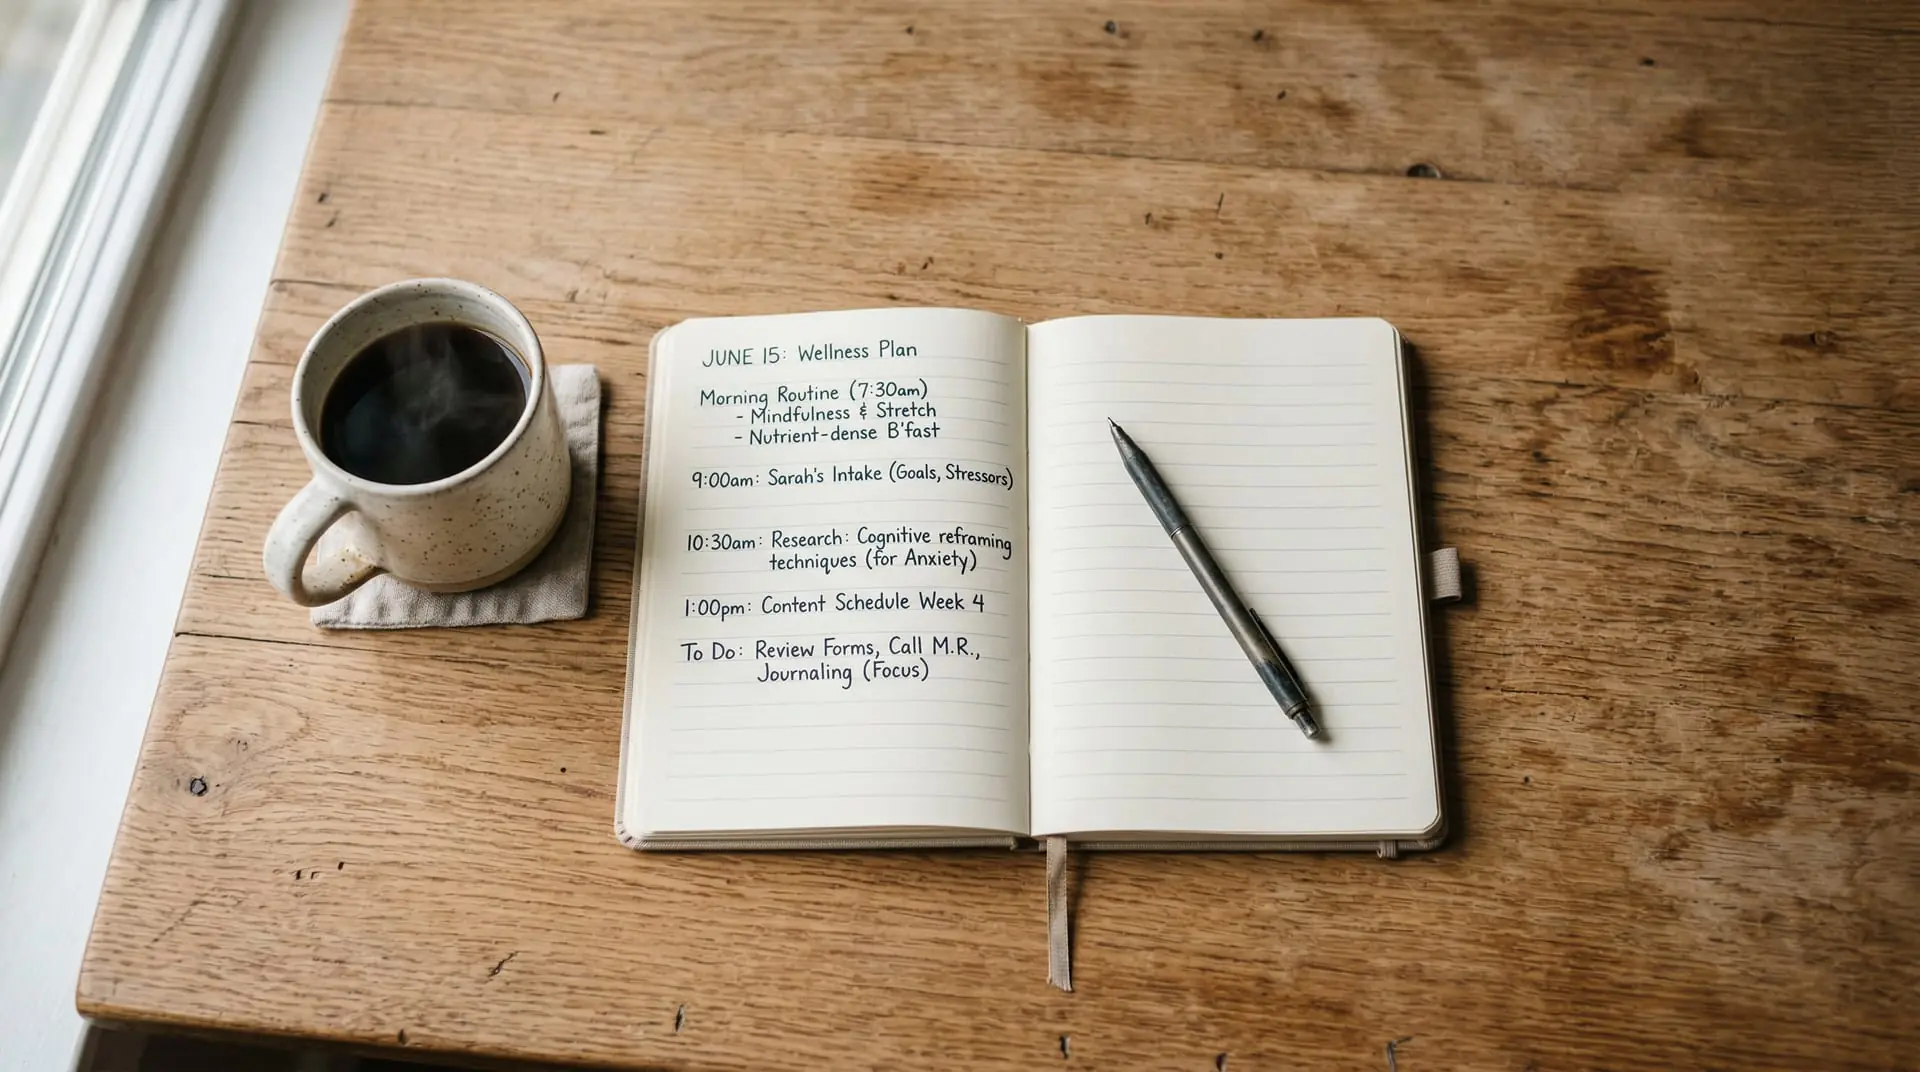 JUNE 15: Wellness Plan
Morning Routine (7:30am)
- Mindfulness & Stretch
- Nutrient-dense B'fast
9:00am: Sarah's Intake (Goals, Stressors)
10:30am: Research: Cognitive reframing
techniques (for Anxiety)
1:00pm: Content Schedule Week 4
To Do: Review Forms, Call M.R.,
Journaling (Focus)